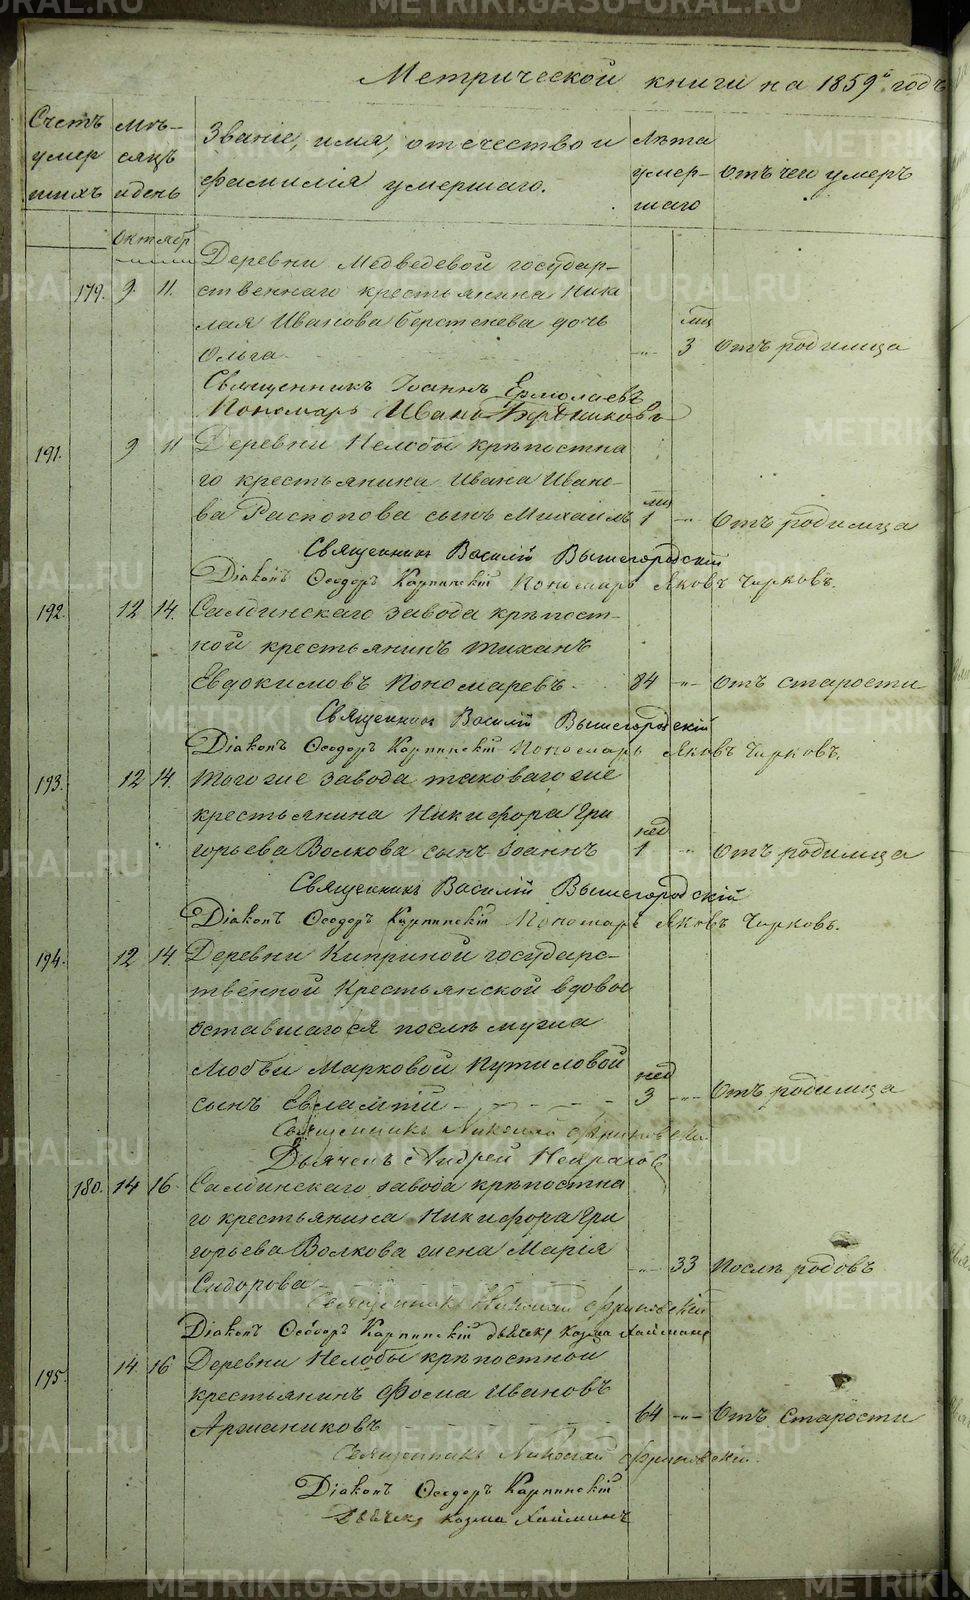 Метрической книги на 1859й годъ
Счетъ умершихъ
Мѣсяцъ и день
Званіе, имя, отчество и фамилія умершаго.
Лѣта умершаго
Отъ чего умеръ
Октябр
Деревни Медведевой государ-
179. 9 11. ственнаго крестьянина Нико
лая Иванова Берстенева дочь
Ольга - „ - 3 мц Отъ родимца
Священникъ Іоаннъ Ермолаевъ
Пономарь Иванъ
191. 9 11 Деревни Нелобы крѣпостна
го крестьянина Ивана Ивано-
ва Распопова сынъ Михаилъ 1 мц - „ - Отъ родимца
Священникъ Василій Вышегородскій
Діаконъ Ѳеодоръ Карпинскій Пономарь Яковъ Чирковъ.
192. 12 14. Салдинскаго завода крѣпост-
ной крестьянинъ Тиханъ
Евдокимовъ Пономаревъ - 84 - „ - Отъ старости
Священникъ Василій Вышегородскій
Діаконъ Ѳеодоръ Карпинскій Пономарь Яковъ Чирковъ.
193. 12 14. Того же завода таковаго же
крестьянина Никифора Гри
горьева Волкова сынъ Іоаннъ 1 нед „ Отъ родимца
Священникъ Василій Вышегородскій
Діаконъ Ѳеодоръ Карпинскій Пономарь Яковъ Чирковъ.
194. 12 14. Деревни Киприной государс-
твенной Крестьянской вдовы
оставшагося послѣ мужа
Любви Марковой Путиловой
сынъ Евлампій - - - - - 3 нед - „ - Отъ родимца
Священникъ Николай
Дьячекъ Андрей
180. 14 16. Салдинскаго завода крѣпостна
го крестьянина Никифора Гри
горьева Волкова жена Марія
Сидорова - - „ - 33 Послѣ родовъ
Священникъ Николай
Діаконъ Ѳеодоръ Карпинскій дьячекъ Козма
195. 14 16 Деревни Нелобы крѣпостной
крестьянинъ Фома Ивановъ
Аржаниковъ 64 - „ - Отъ Старости
Священникъ Николай
Діаконъ Ѳеодоръ Карпинскій
Дьячекъ Козма
METRIKI.GASO-URAL.RU